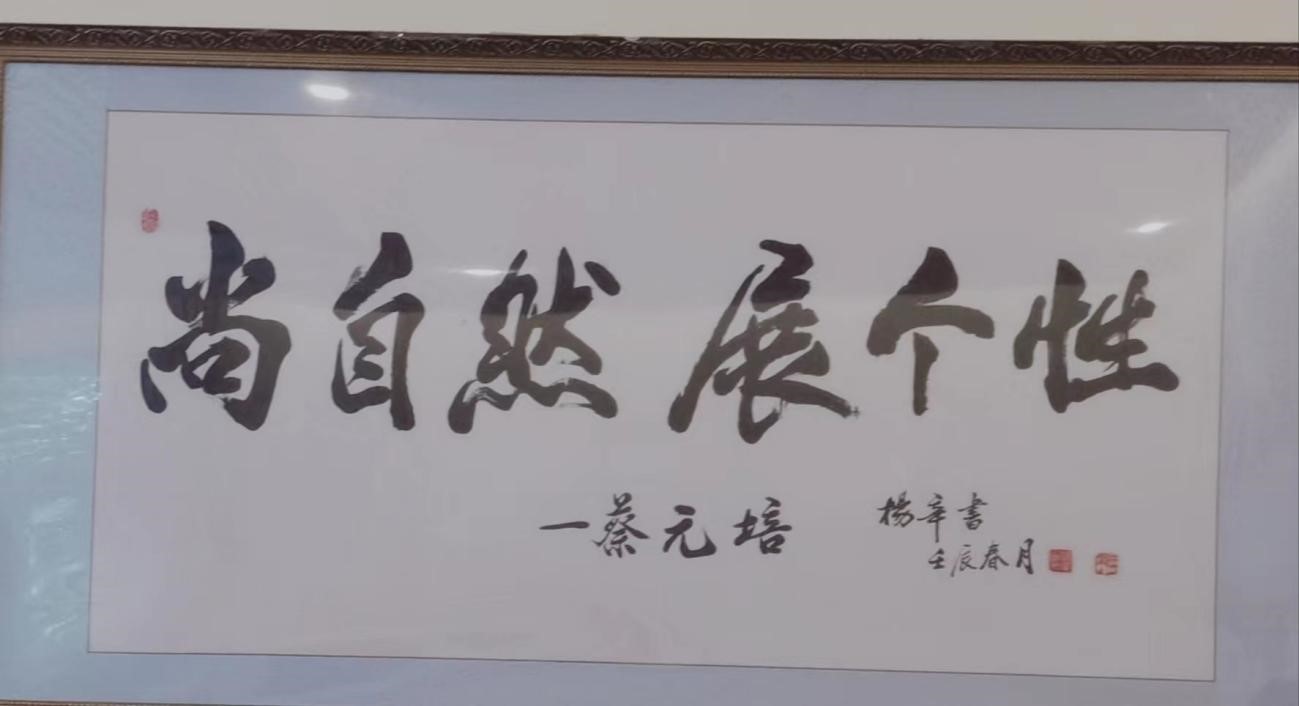 尚自然 展个性
一蔡元培
楊辛書
壬辰春月